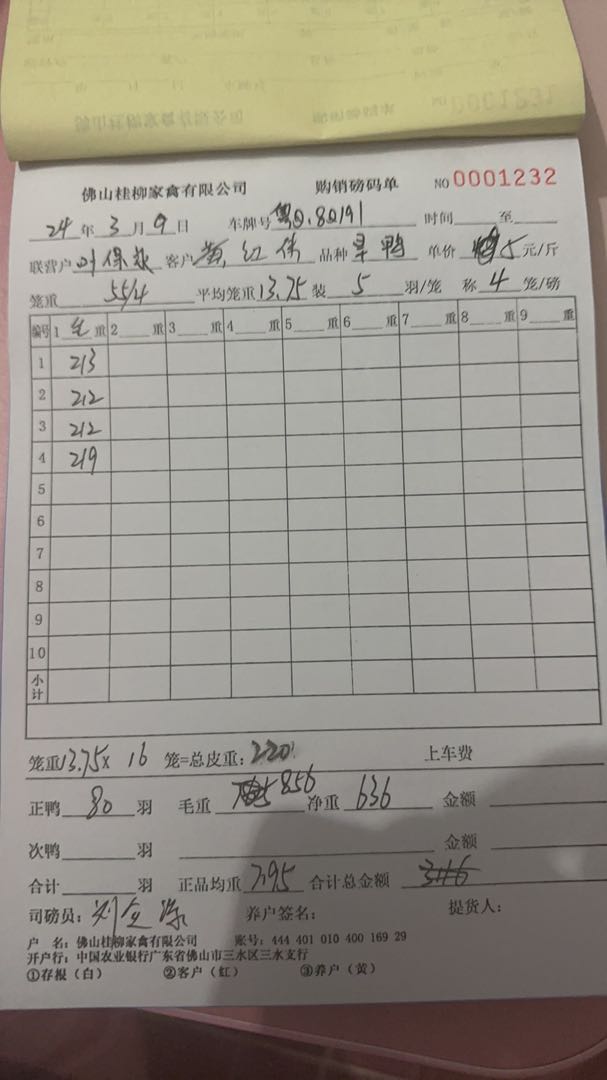 佛山桂柳家禽有限公司 购销磅码单 NO 0001232
24年3月9日 车牌号粤Q.8Q191 时间____至____
联营户 叶保 客户 黄红伟 品种 旱鸭 单价 5元/斤
笼重 55/4 平均笼重13.75 装 5 羽/笼 称 4 笼/磅
编号 1 毛 重 2 重 3 重 4 重 5 重 6 重 7 重 8 重 9 重
1 213
2 212
3 212
4 219
5
6
7
8
9
10
小计
笼重13.75× 16 笼=总皮重:220 上车费
正鸭 80 羽 毛重 856 净重 636 金额
次鸭 羽 金额
合计 羽 正品均重 7.95 合计总金额 3116
司磅员:刘 养户签名: 提货人:
户 名:佛山桂柳家禽有限公司 账号:444 401 010 400 169 29
开户行:中国农业银行广东省佛山市三水区三水支行
①存根(白) ②客户(红) ③养户(黄)